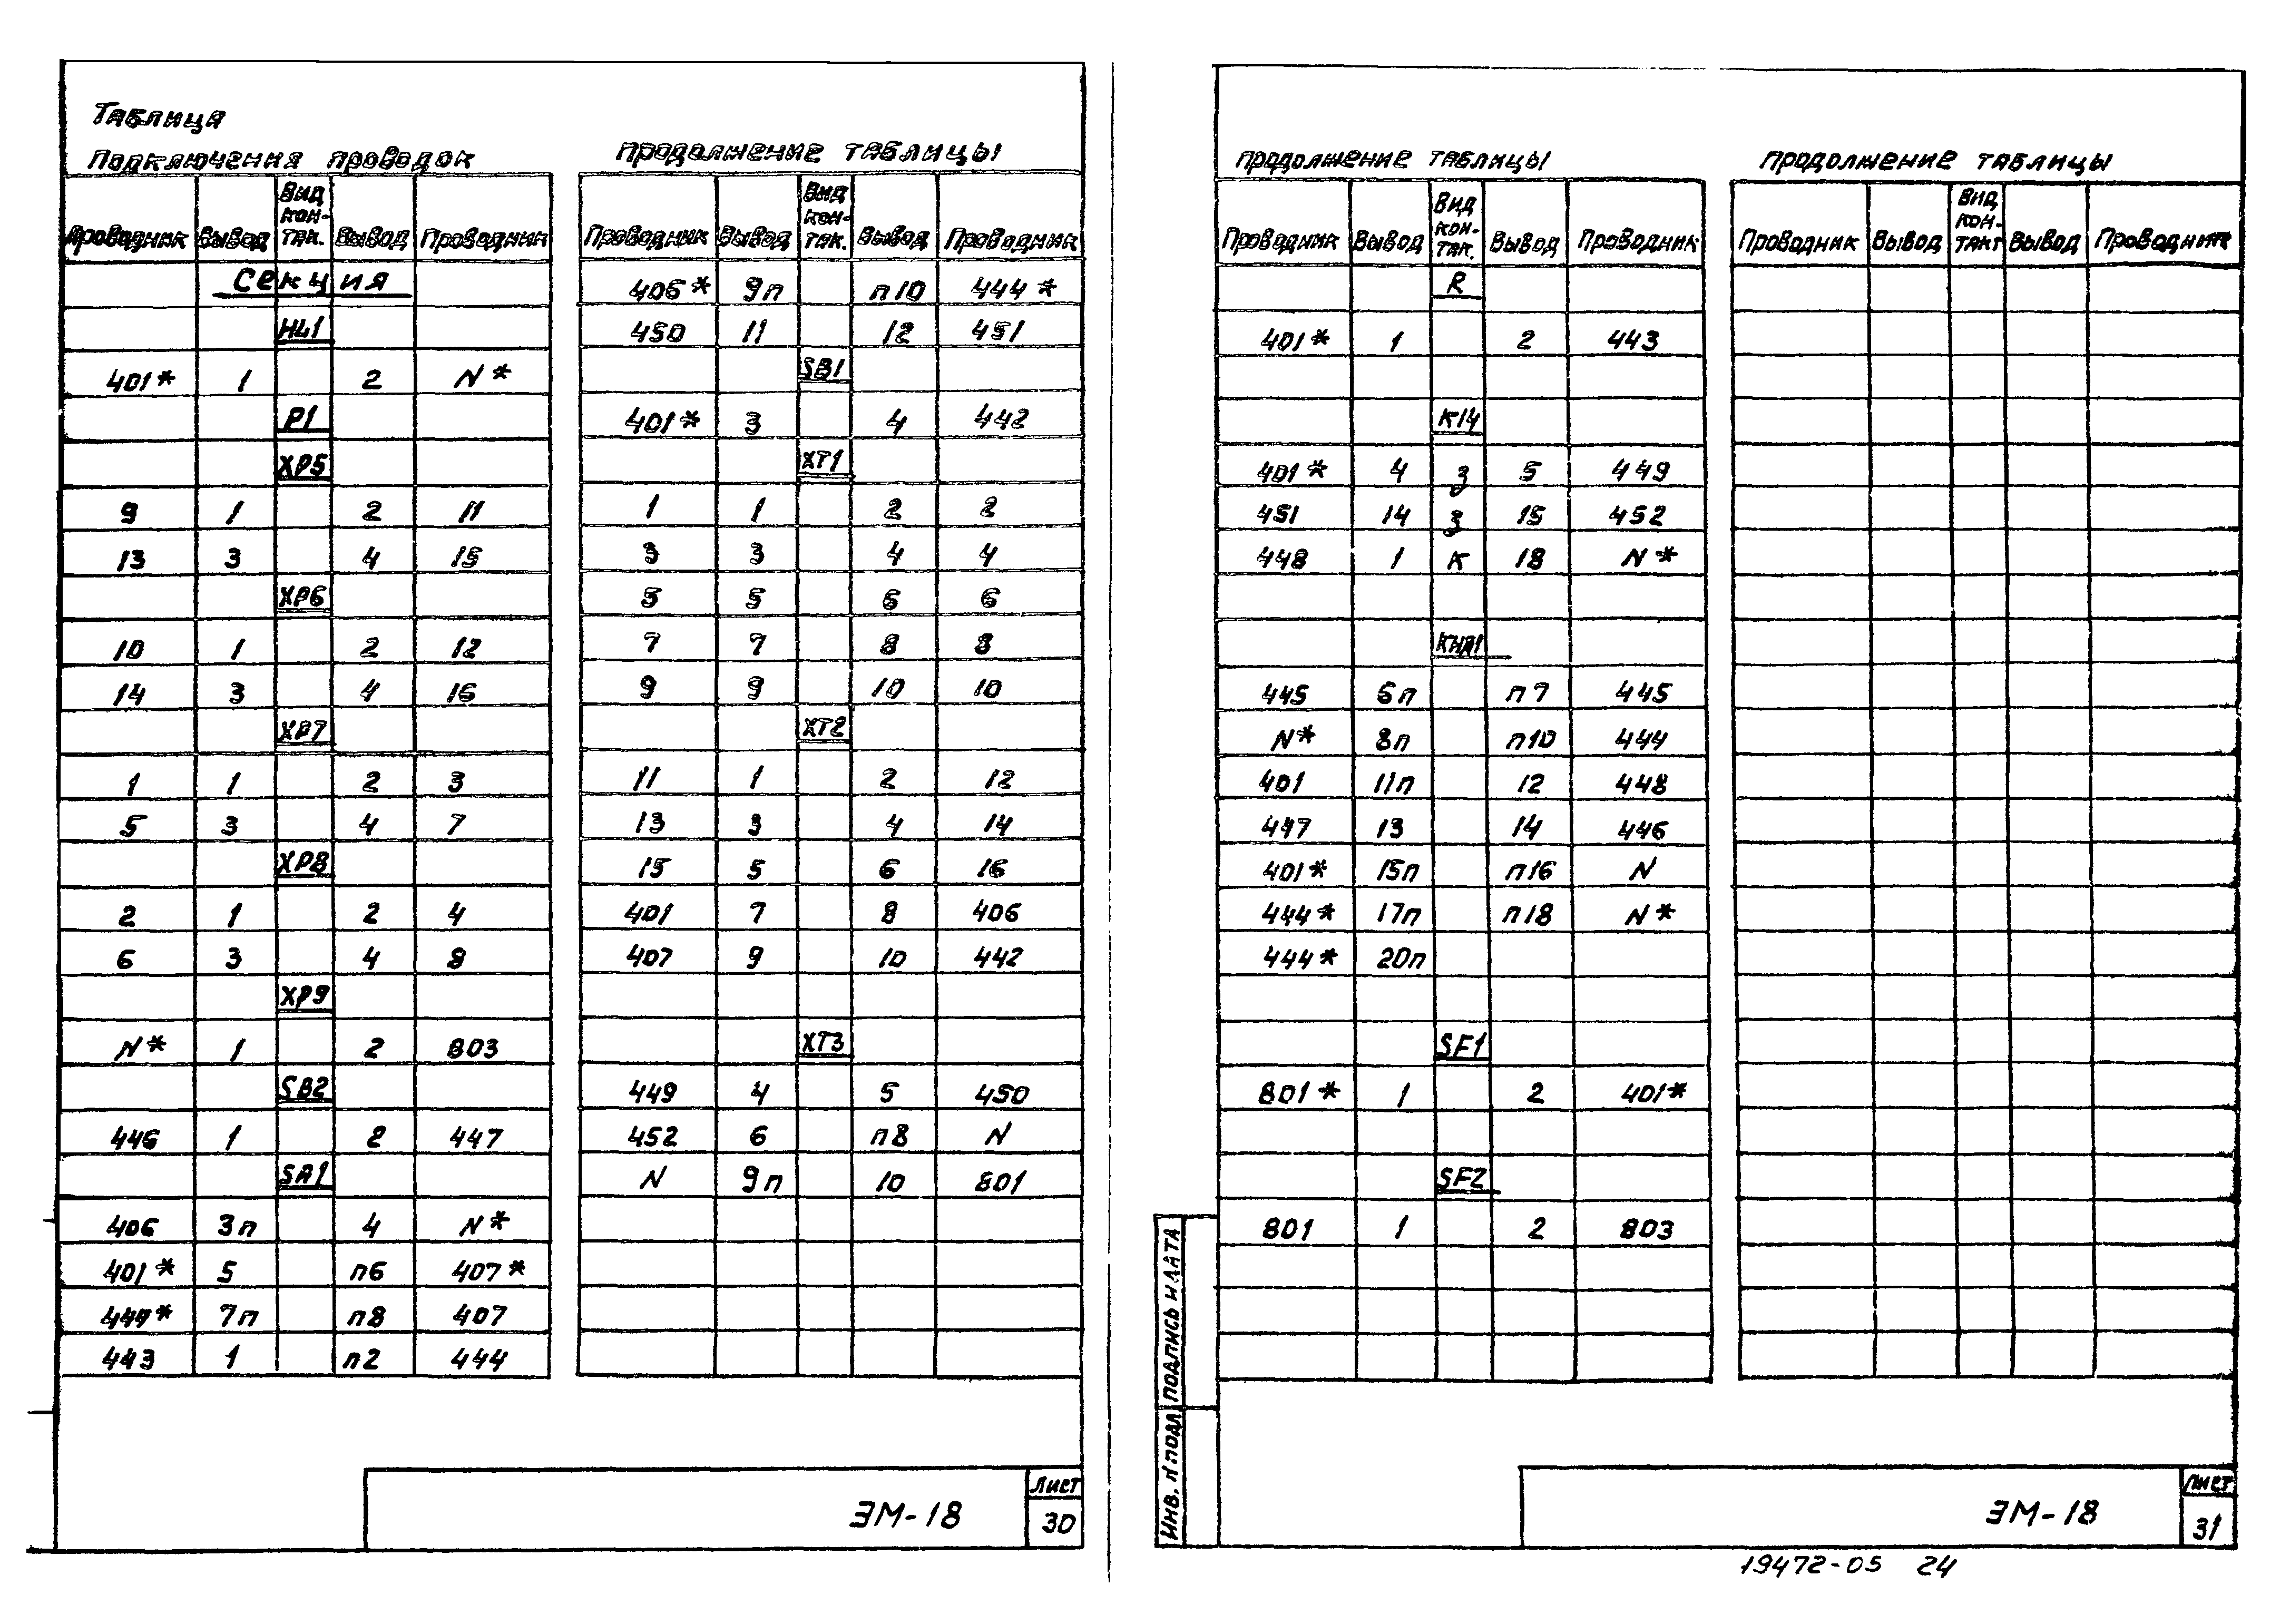 Таблица
подключения проводок
Проводник Вывод Вид кон- так. Вывод Проводник
Секция
HL1
401* 1 2 N*
P1
XP5
9 1 2 11
13 3 4 15
XP6
10 1 2 12
14 3 4 16
XP7
1 1 2 3
5 3 4 7
XP8
2 1 2 4
6 3 4 8
XP9
N* 1 2 803
SB2
446 1 2 447
SA1
406 3п 4 N*
401* 5 п6 407*
444* 7п п8 407
443 1 п2 444
продолжение таблицы
Проводник Вывод Вид кон- так. Вывод Проводник
406* 9п п10 444*
450 11 12 451
SB1
401* 3 4 442
XT1
1 1 2 2
3 3 4 4
5 5 6 6
7 7 8 8
9 9 10 10
XT2
11 1 2 12
13 3 4 14
15 5 6 16
401 7 8 406
407 9 10 442
XT3
449 4 5 450
452 6 п8 N
N 9п 10 801
ЭМ-18
Лист
30
продолжение таблицы
Проводник Вывод Вид кон- так. Вывод Проводник
R
401* 1 2 443
K14
401* 4 з 5 449
451 14 з 15 452
448 1 К 18 N*
КНД1
445 6п п7 445
N* 8п п10 444
401 11п 12 448
447 13 14 446
401* 15п п16 N
444* 17п п18 N*
444* 20п
SF1
801* 1 2 401*
SF2
801 1 2 803
продолжение таблицы
Проводник Вывод Вид кон- такт Вывод Проводник
Инв. № подл
Подпись и дата
ЭМ-18
Лист
31
19472-05 24